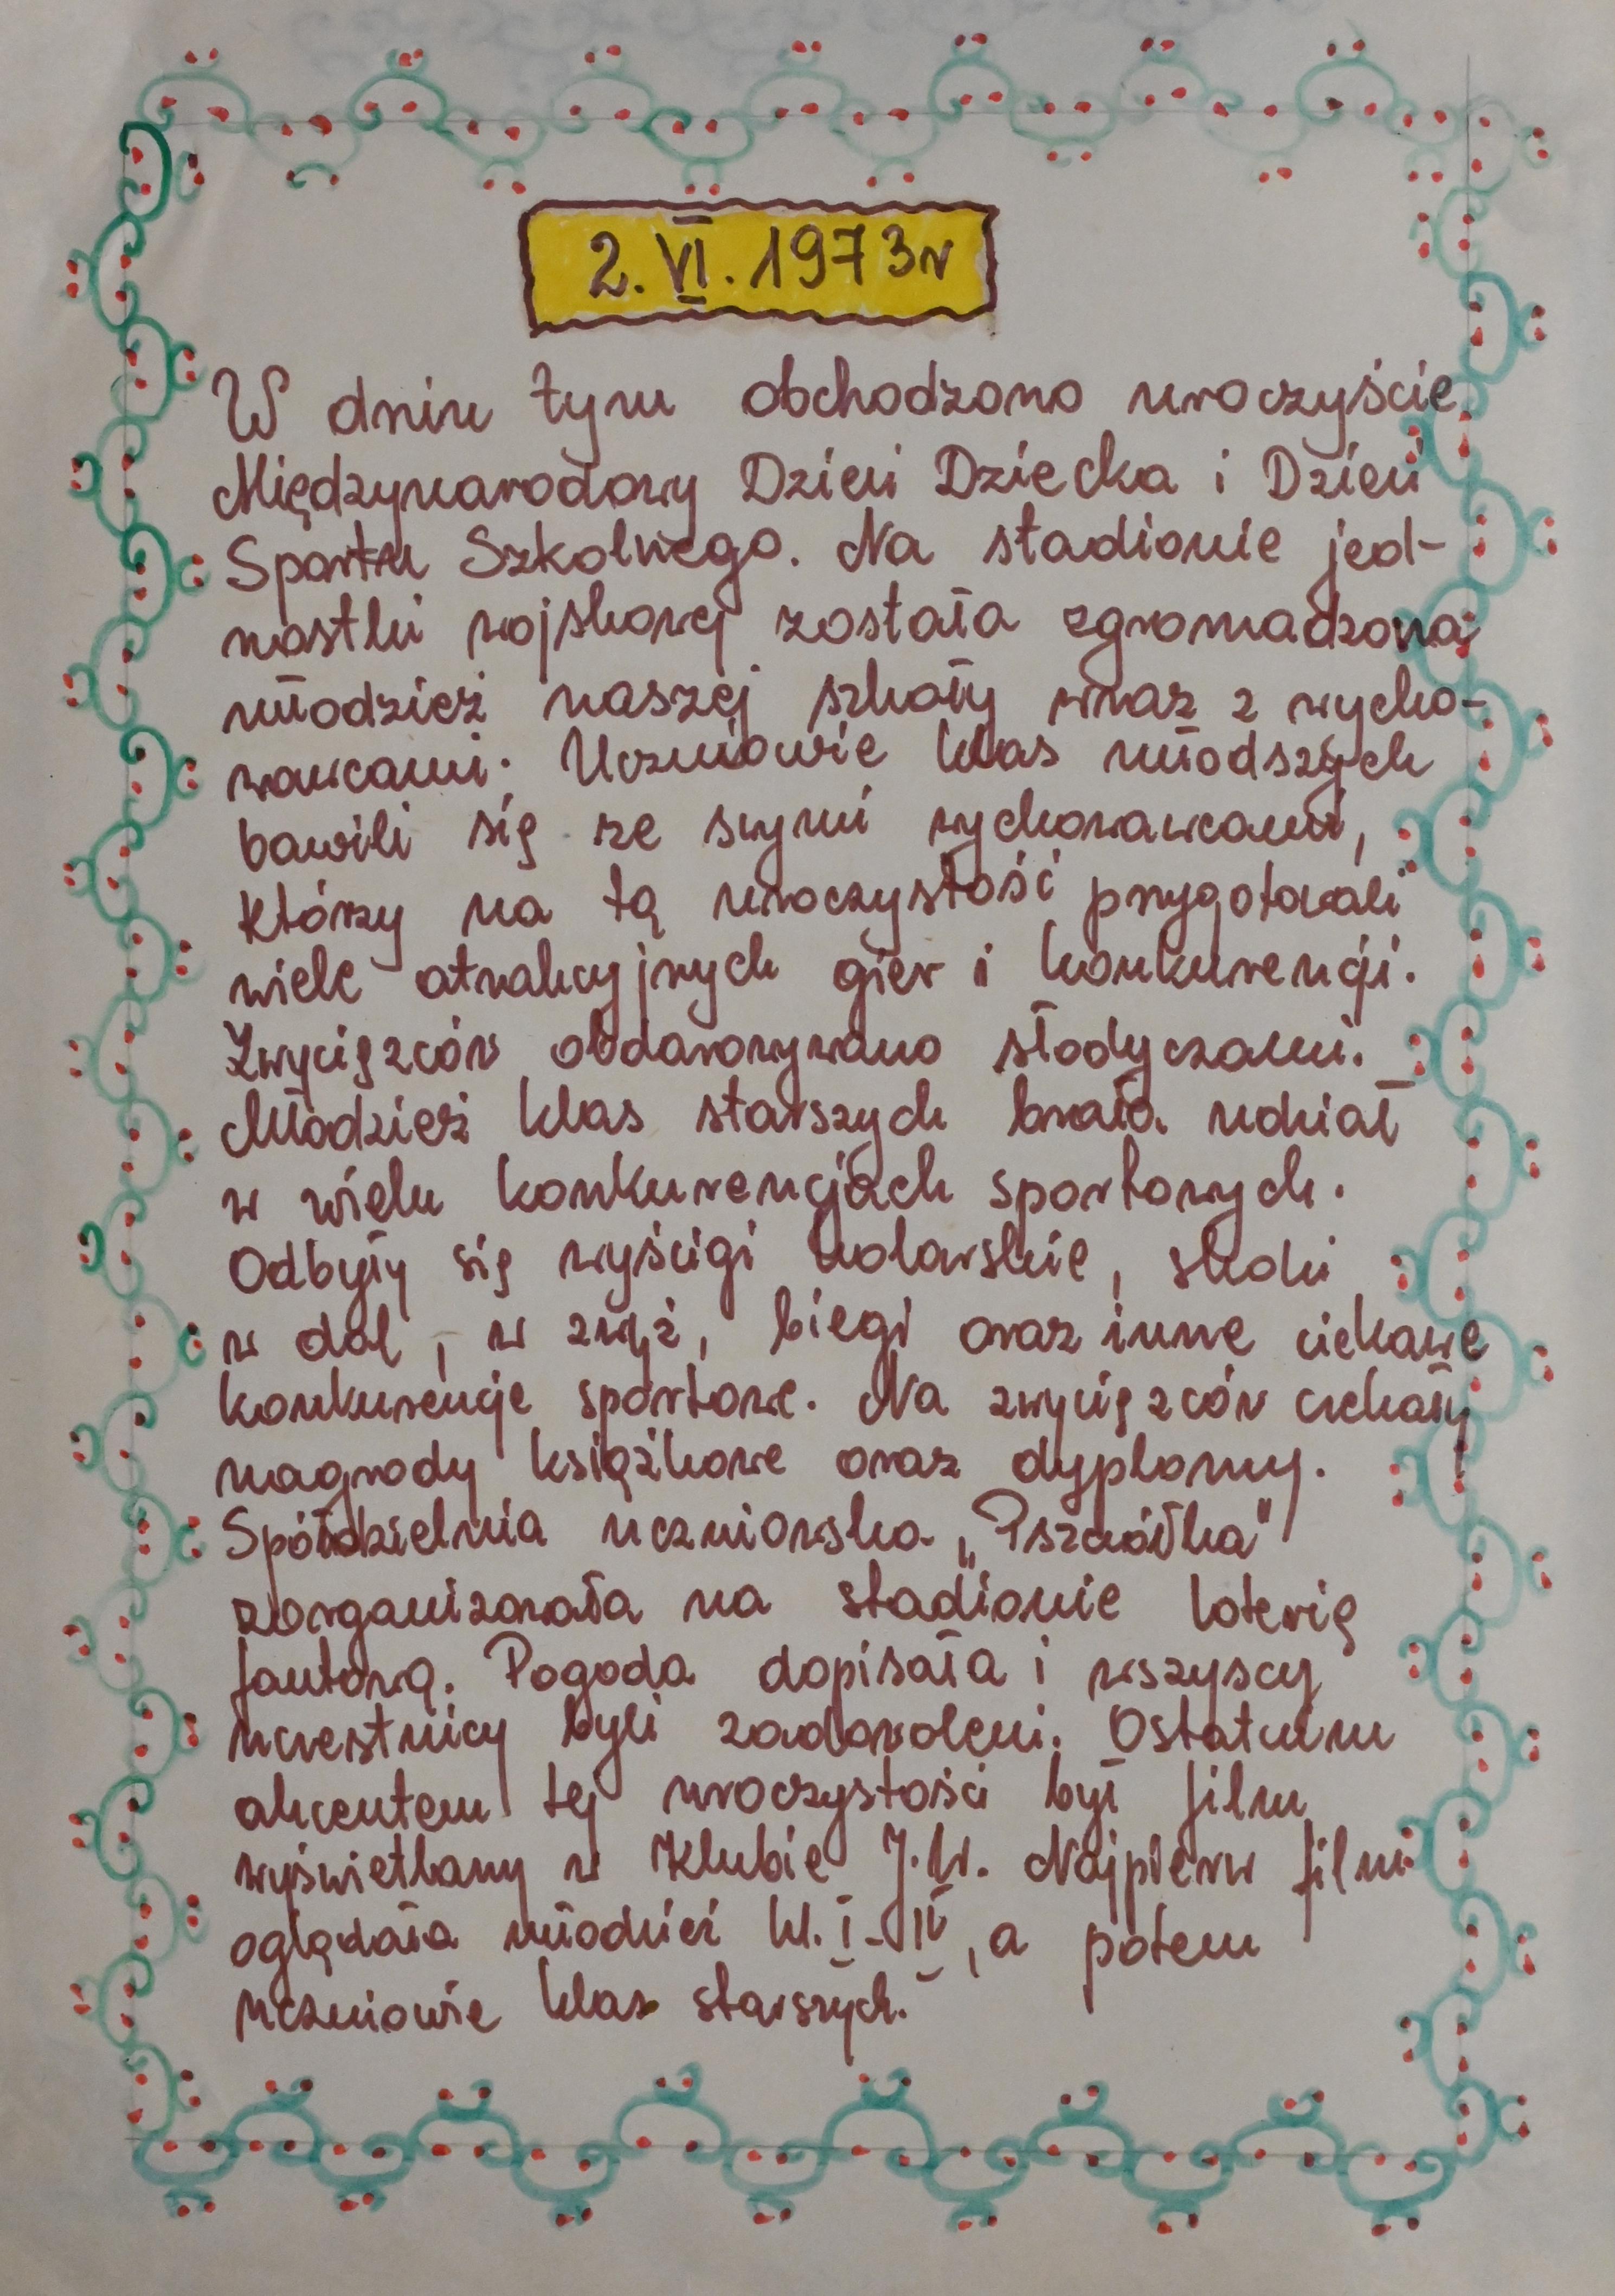 2. VI. 1973r
W dniu tym obchodzono uroczyście
Międzynarodowy Dzień Dziecka i Dzień
Sportu Szkolnego. Na stadionie jed-
nostki wojskowej została zgromadzona
młodzież naszej szkoły wraz z wycho-
wawcami. Uczniowie klas młodszych
bawili się ze swymi wychowawcami,
którzy na tą uroczystość przygotowali
wiele atrakcyjnych gier i konkurencji.
Zwycięzców obdarowywano słodyczami.
Młodzież klas starszych brała udział
w wielu konkurencjach sportowych.
Odbyły się wyścigi kolarskie, skoki
w dal, w zwyż, biegi oraz inne ciekawe
konkurencje sportowe. Na zwycięzców czekały
nagrody książkowe oraz dyplomy.
Spółdzielnia uczniowska „Pszczółka"
zorganizowała na stadionie loterię
fantową. Pogoda dopisała i wszyscy
uczestnicy byli zadowoleni. Ostatnim
akcentem tej uroczystości był film
wyświetlany w Klubie J.W. Najpierw film
oglądała młodzież kl. I-IV, a potem
uczniowie klas starszych.